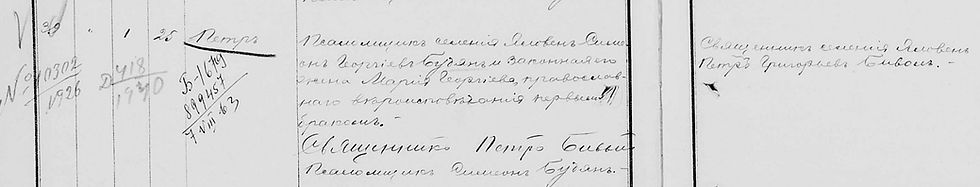 30 " 1 25 Петръ
№ 10302
1926
D 418
1940
Б-16 №
899457
7 VIII 63
Псаломщикъ селенія Яловень Симе-
онъ Георгіевъ Буђянъ и законная его
жена Марія Георгіева, православ-
наго вѣроисповѣданія первымъ
бракомъ. -
Священникъ Петръ Бивол
Псаломщикъ Симеонъ Буђянъ. -
Священникъ селенія Яловень
Петръ Григорьевъ Биволъ. -